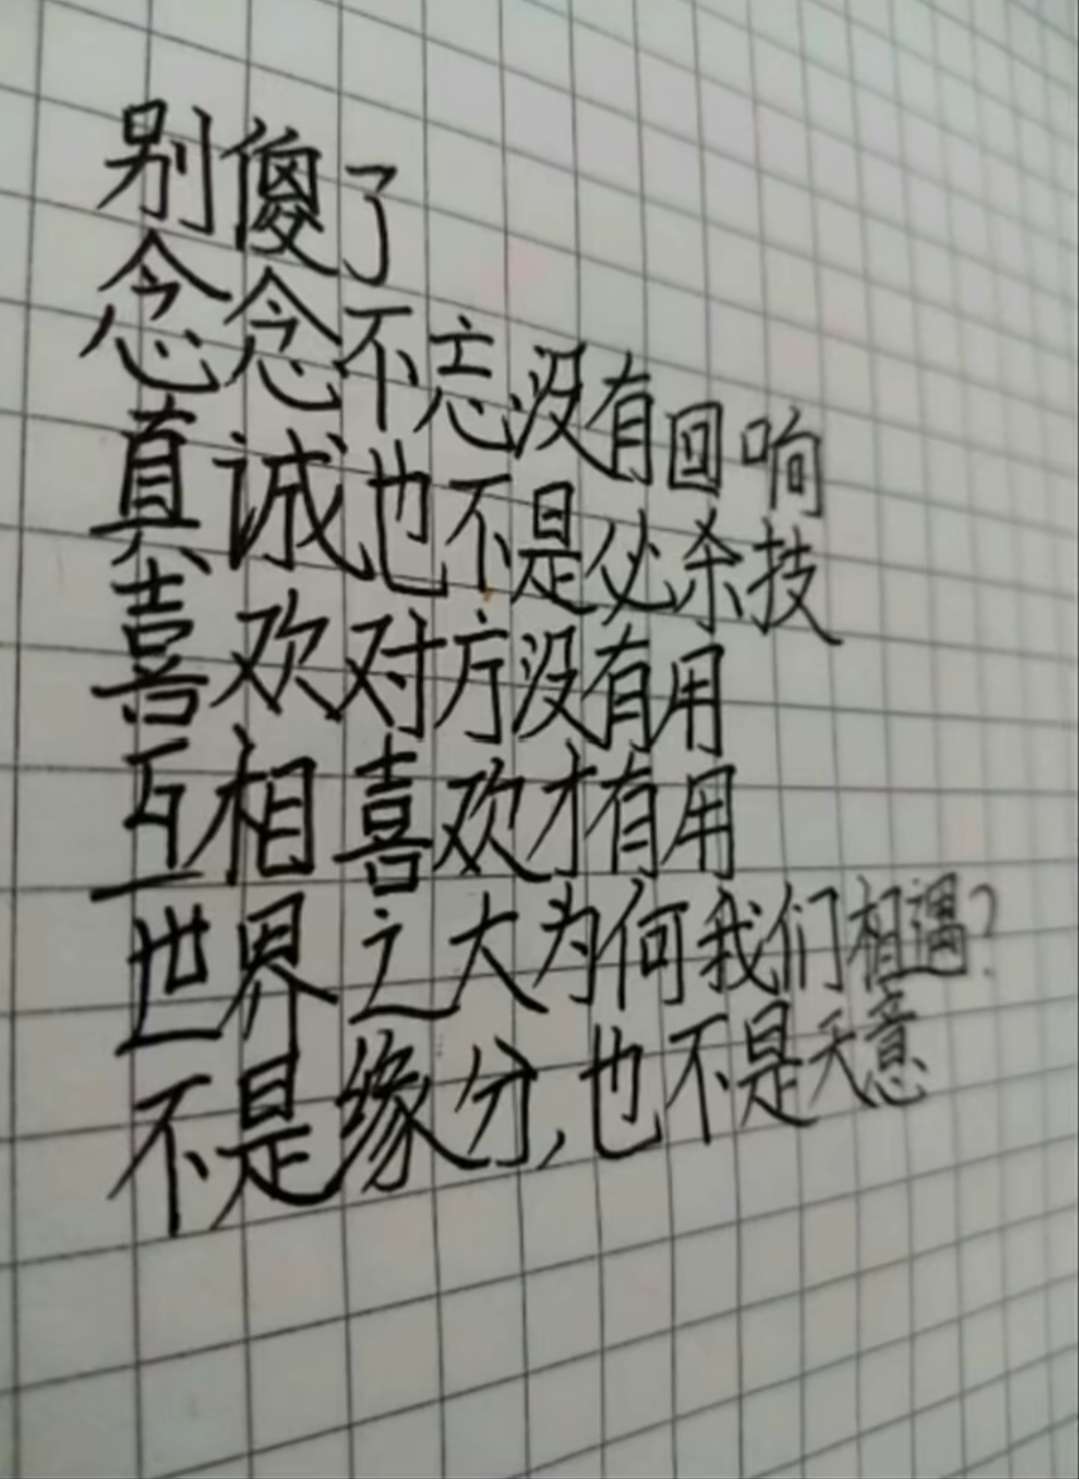 别傻了
念念不忘没有回响
真诚也不是必杀技
喜欢对方没有用
互相喜欢才有用
世界之大为何我们相遇?
不是缘分,也不是天意